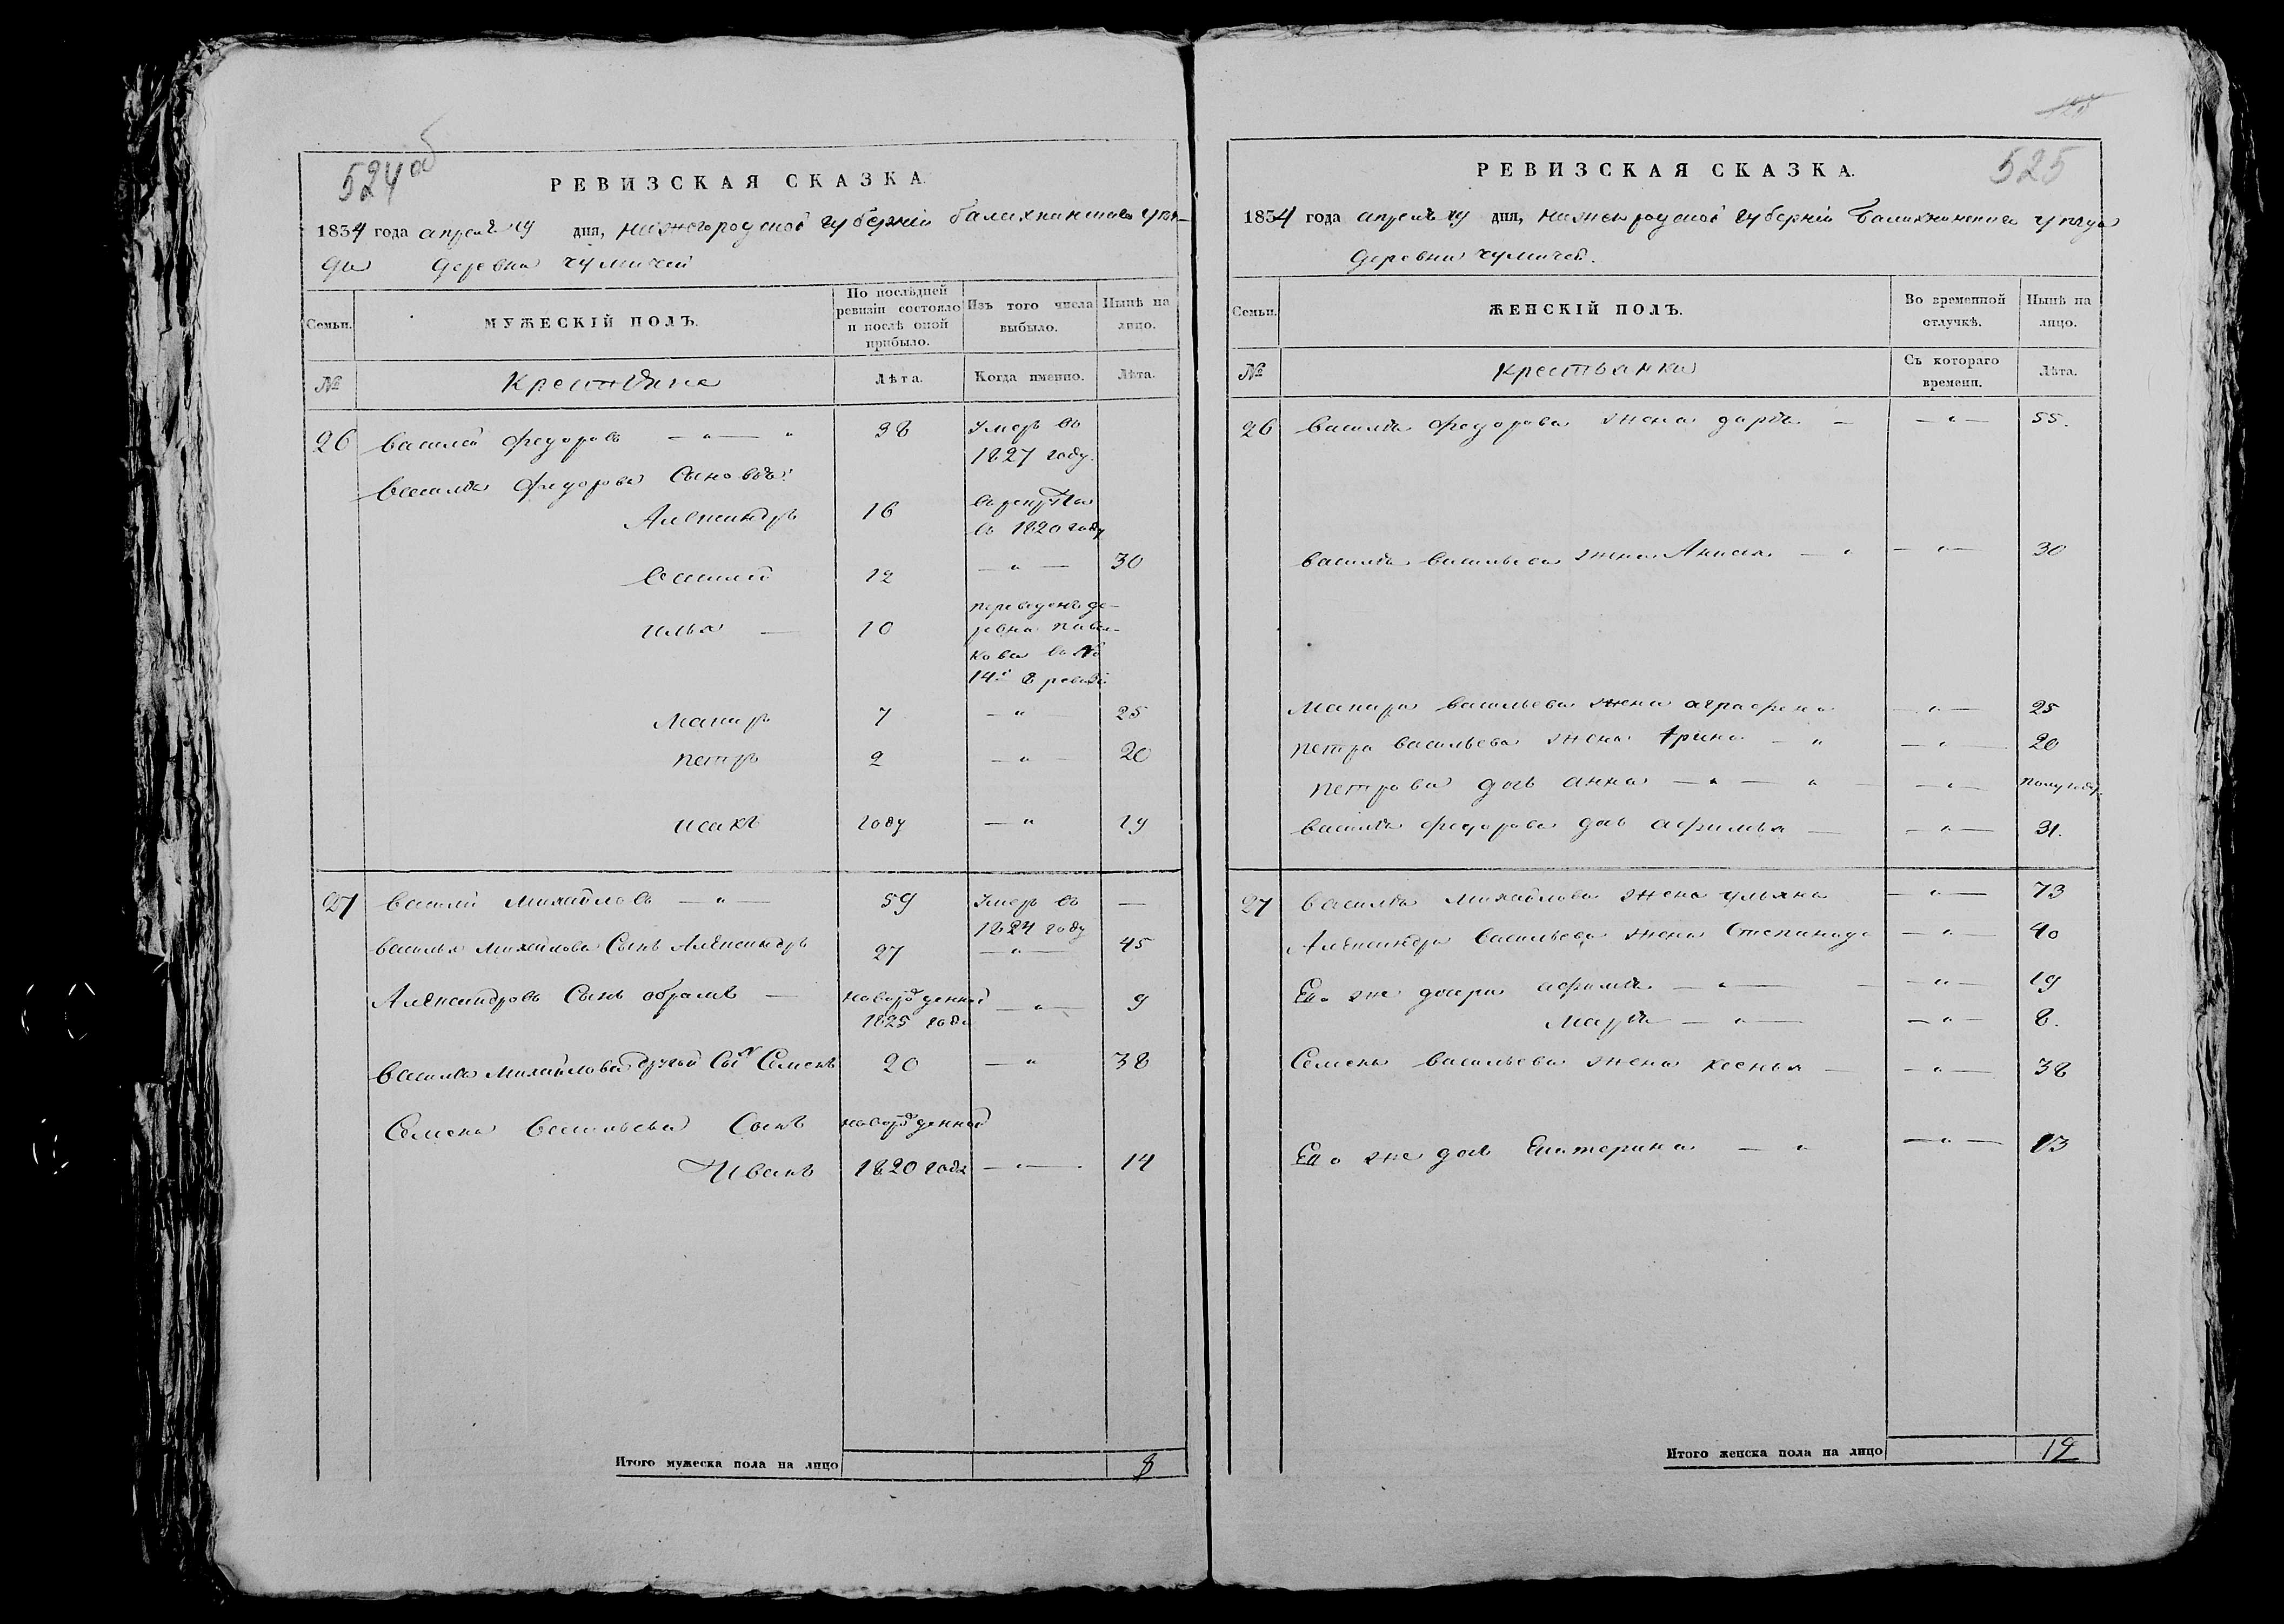 524 об
РЕВИЗСКАЯ СКАЗКА.
1834 года апреля 19 дня, нижегородской губерніи балахнинскаго уез-
да деревни чумичей
Семьи. МУЖЕСКІЙ ПОЛЪ. По послѣдней ревизіи состояло и послѣ оной прибыло. Изъ того числа выбыло. Нынѣ на лицо.
№ Крестьяне Лѣта. Когда именно. Лѣта.
26 василей федоровъ 38 умеръ въ
1827 году.
василья федорова сыновья:
Александръ 16 въ рекруты
въ 1820 году
василей 12 30
переведенъ де-
илья 10 ревни
кова въ №
14й 8 ревизіи
Макаръ 7 25
петръ 2 20
исакъ году 19
27 василей михайловъ 59 умеръ въ
1824 году
василья михайлова сынъ Александръ 27 45
Александровъ сынъ обрамъ новорожденной 9
1825 года
василья михайлова другой сынъ Семенъ 20 38
Семена васильева сынъ новорожденной
Иванъ 1820 года 14
Итого мужеска пола на лицо 8
525
РЕВИЗСКАЯ СКАЗКА.
1834 года апреля 19 дня, нижегородской губерніи балахнинскаго уезда
деревни чумичей.
Семьи. ЖЕНСКІЙ ПОЛЪ. Во временной отлучкѣ. Нынѣ на лицо.
№ крестьянки Съ котораго времени. Лѣта.
26 василья федорова жена дарья 55.
василья васильева жена Анисья 30
Макара васильева жена аграфена 25
петра васильева жена Арина 20
петрова дочь анна полугоду.
василья федорова дочь афимья 31.
27 василья михайлова жена ульяна 73
Александра васильева жена степанида 40
Его же дочери афимья 19
Марья 8.
Семена васильева жена ксенья 38
Его же дочь Екатерина 13
Итого женска пола на лицо 12